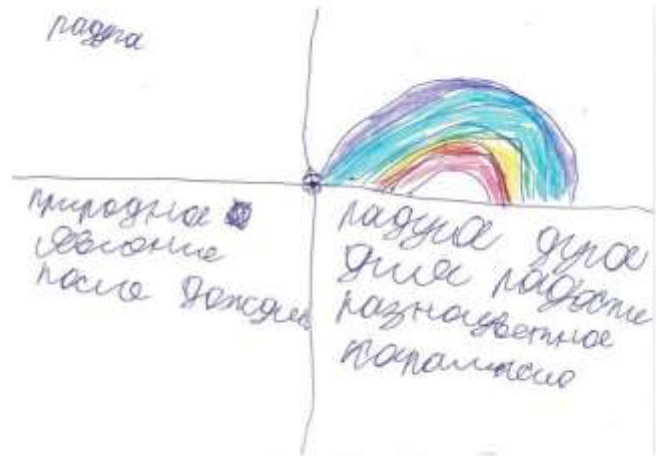 радуга
природное
явление
после дождя
радуга дуга
для радости
разноцветное
коромысло